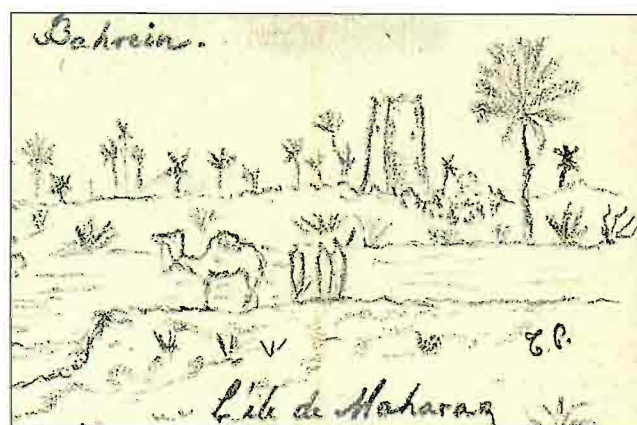 Bahrein.
T.P.
L'île de Maharaz